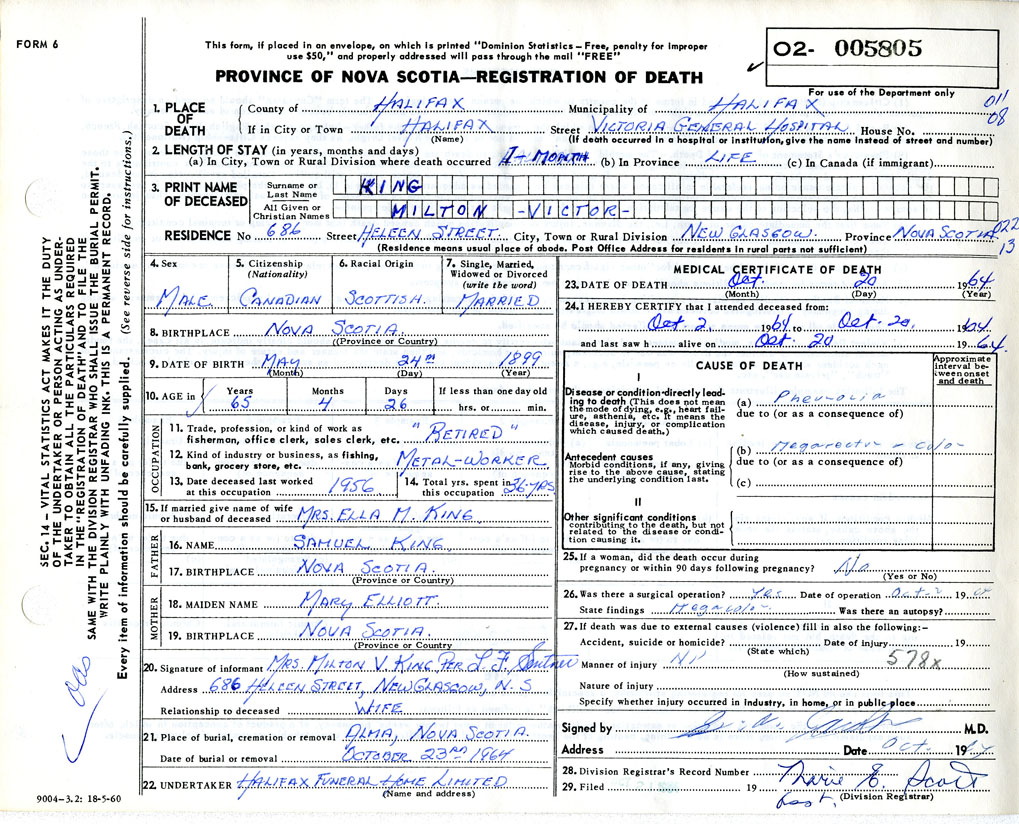 FORM 6
This form, if placed in an envelope, on which is printed "Dominion Statistics – Free, penalty for improper
use $50," and properly addressed will pass through the mail "FREE"
PROVINCE OF NOVA SCOTIA—REGISTRATION OF DEATH
O2- 005805
For use of the Department only
011
08
SEC. 14 – VITAL STATISTICS ACT MAKES IT THE DUTY
OF THE UNDERTAKER OR PERSON ACTING AS UNDER-
TAKER TO OBTAIN ALL THE PARTICULARS REQUIRED
IN THE "REGISTRATION OF DEATH" AND TO FILE THE
SAME WITH THE DIVISION REGISTRAR WHO SHALL ISSUE THE BURIAL PERMIT.
WRITE PLAINLY WITH UNFADING INK. THIS IS A PERMANENT RECORD.
Every item of information should be carefully supplied. (See reverse side for instructions.)
1. PLACE OF DEATH
County of HALIFAX Municipality of HALIFAX
If in City or Town HALIFAX Street VICTORIA GENERAL HOSPITAL House No.
(Name) (If death occurred in a hospital or institution, give the name instead of street and number)
2. LENGTH OF STAY (in years, months and days)
(a) In City, Town or Rural Division where death occurred 1-MONTH (b) In Province LIFE (c) In Canada (if immigrant)
3. PRINT NAME OF DECEASED
Surname or Last Name KING
All Given or Christian Names MILTON -VICTOR-
RESIDENCE No 686 Street HELEEN STREET City, Town or Rural Division NEW GLASGOW Province NOVA SCOTIA
(Residence means usual place of abode. Post Office Address for residents in rural parts not sufficient)
022
13
4. Sex MALE
5. Citizenship (Nationality) CANADIAN
6. Racial Origin SCOTTISH
7. Single, Married, Widowed or Divorced (write the word) MARRIED
8. BIRTHPLACE NOVA SCOTIA
(Province or Country)
9. DATE OF BIRTH MAY 24TH 1899
(Month) (Day) (Year)
10. AGE in Years 65 Months 4 Days 26 If less than one day old hrs. or min.
OCCUPATION
11. Trade, profession, or kind of work as fisherman, office clerk, sales clerk, etc. "RETIRED"
12. Kind of industry or business, as fishing, bank, grocery store, etc. METAL-WORKER
13. Date deceased last worked at this occupation 1956
14. Total yrs. spent in this occupation 36-YRS
15. If married give name of wife or husband of deceased MRS. ELLA M. KING
FATHER
16. NAME SAMUEL KING
17. BIRTHPLACE NOVA SCOTIA
(Province or Country)
MOTHER
18. MAIDEN NAME MARY ELLIOTT
19. BIRTHPLACE NOVA SCOTIA
(Province or Country)
20. Signature of informant MRS. MILTON V. KING PER L. F.
Address 686 HELEEN STREET, NEW GLASGOW, N. S
Relationship to deceased WIFE
21. Place of burial, cremation or removal ALMA, NOVA SCOTIA
Date of burial or removal OCTOBER 23RD 1964
22 UNDERTAKER HALIFAX FUNERAL HOME LIMITED
(Name and address)
9004–3.2: 18-5-60
MEDICAL CERTIFICATE OF DEATH
23. DATE OF DEATH Oct. 20 1964
(Month) (Day) (Year)
24. I HEREBY CERTIFY that I attended deceased from:
Oct. 2 1964 to Oct. 20 1964
and last saw h alive on Oct. 20 1964
CAUSE OF DEATH
Approximate interval between onset and death
I
Disease or condition directly leading to death (This does not mean the mode of dying, e.g., heart failure, asthenia, etc. It means the disease, injury, or complication which caused death.)
(a)
due to (or as a consequence of)
Antecedent causes
Morbid conditions, if any, giving rise to the above cause, stating the underlying condition last.
(b) Megarectum - colo-
due to (or as a consequence of)
(c)
II
Other significant conditions
contributing to the death, but not related to the disease or condition causing it.
25. If a woman, did the death occur during pregnancy or within 90 days following pregnancy? No
(Yes or No)
26. Was there a surgical operation? Yes Date of operation Oct 2 19
State findings Megacolon Was there an autopsy?
27. If death was due to external causes (violence) fill in also the following:–
Accident, suicide or homicide? Date of injury 19
(State which)
Manner of injury
578x
(How sustained)
Nature of injury
Specify whether injury occurred in Industry, in home, or in public place
Signed by M.D.
Address Date Oct 1964
28. Division Registrar's Record Number
29. Filed 19 Marie E. Scott
(Division Registrar)